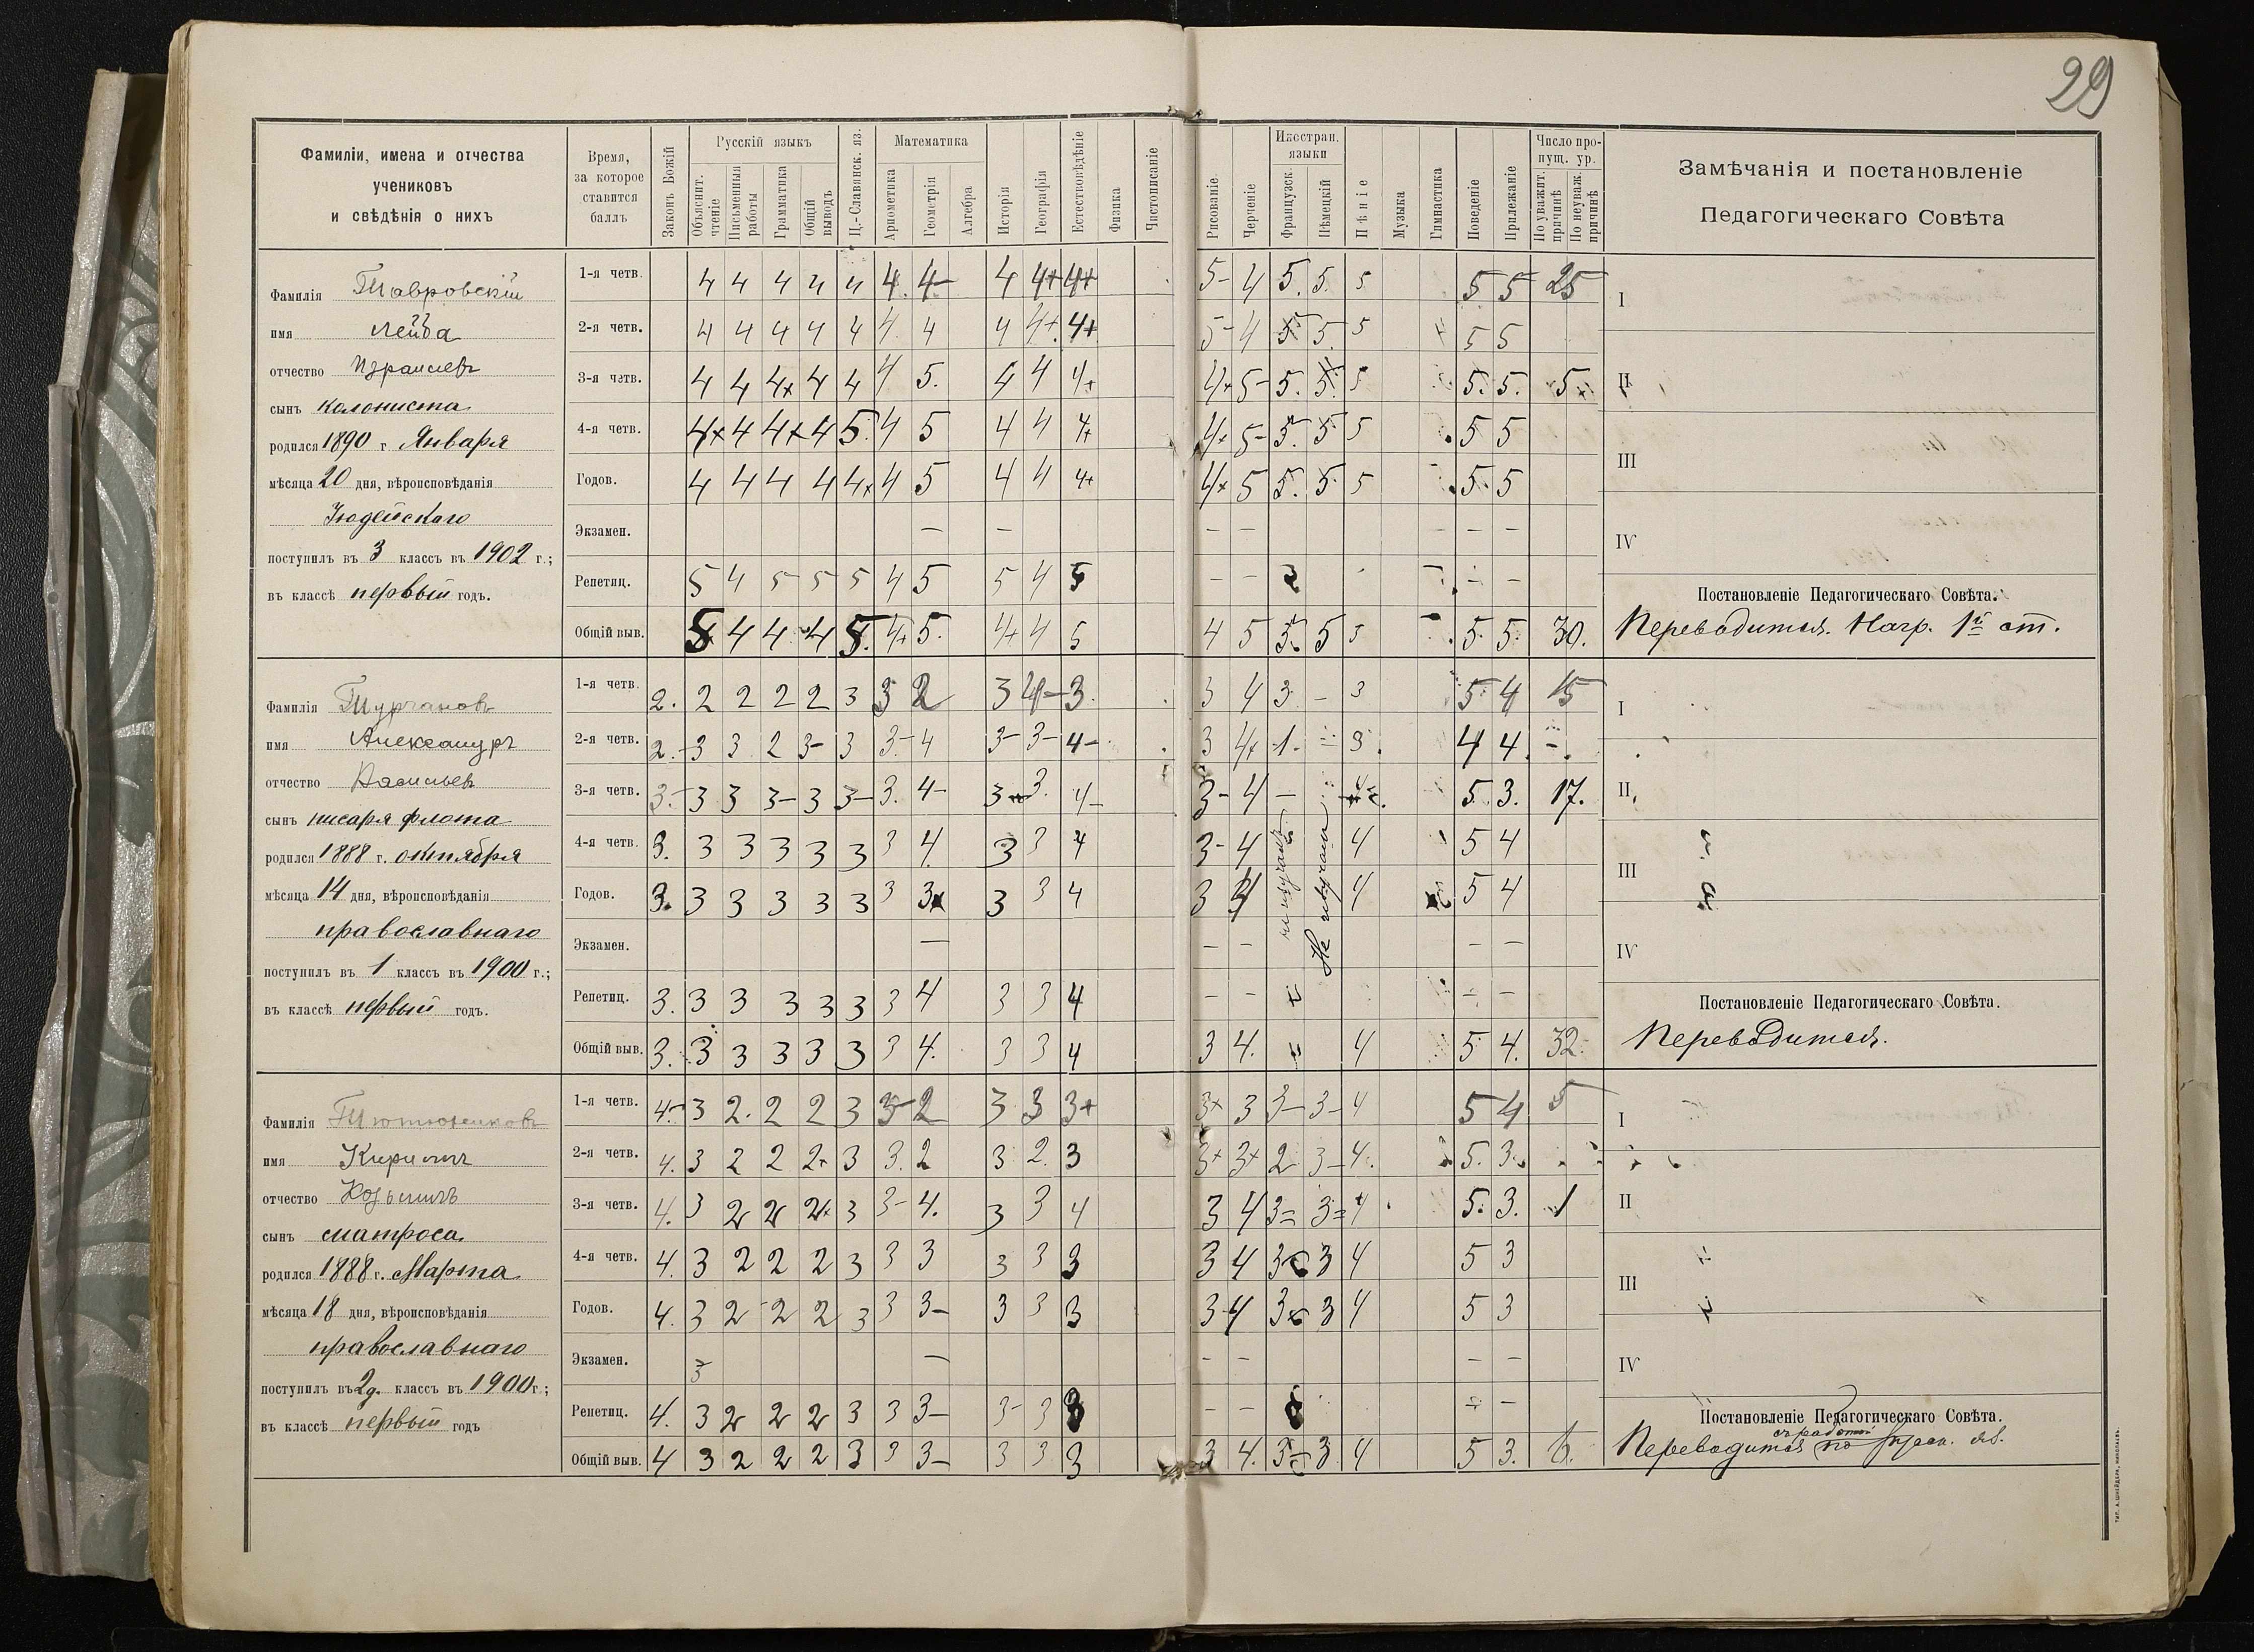 29
Фамилiи, имена и отчества
учениковъ
и свѣдѣнiя о нихъ
Время,
за которое
ставится
баллъ
Законъ Божiй
Русскiй языкъ
Объяснит.
чтенiе
Письменныя
работы
Грамматика
Общiй
выводъ
Ц.-Славянск. яз.
Математика
Ариөметика
Геометрiя
Алгебра
Исторiя
Географiя
Естествовѣдѣнiе
Физика
Чистописанiе
Рисованiе
Черченiе
Иностран.
языки
Французск.
Нѣмецкiй
Пѣнiе
Музыка
Гимнастика
Поведенiе
Прилежанiе
Число про-
пущ. ур.
По уважит.
причинѣ
По неуваж.
причинѣ
Замѣчанiя и постановленiе
Педагогическаго Совѣта
Фамилiя Тавровскiй
имя Лейба
отчество Израилевъ
сынъ колониста
родился 1890 г Января
мѣсяца 20 дня, вѣроисповѣданiя
Iюдейскаго
поступилъ въ 3 классъ въ 1902 г.;
въ классѣ первый годъ.
1-я четв. 4 4 4 4 4 4. 4- 4 4+ 4+ 5- 4 5. 5. 5 5 5 25
2-я четв. 4 4 4 4 4 4. 4 4 4+ 4+ 5- 4 5 5. 5 5 5
3-я четв. 4 4 4+ 4 4 4 5. 4 4 4+ 4+ 5- 5. 5. 5 5. 5. 5
4-я четв. 4+ 4 4+ 4 5. 4 5 4 4 4+ 4+ 5- 5. 5 5 5 5
Годов. 4 4 4 4 4+ 4 5 4 4 4+ 4+ 5 5. 5. 5 5. 5
Экзамен. — — — — — —
Репетиц. 5 4 5 5 5 4 5 5 4 5 — — — —
Общiй выв. 5 4 4 4 5. 4+ 5. 4+ 4 5 4 5 5. 5 5 5. 5. 30.
I
II
III
IV
Постановленiе Педагогическаго Совѣта.
Переводится. Нагр. 1й ст.
Фамилiя Турчановъ
имя Александръ
отчество Васильевъ
сынъ писаря флота
родился 1888 г. октября
мѣсяца 14 дня, вѣроисповѣданiя
православнаго
поступилъ въ 1 классъ въ 1900 г.;
въ классѣ первый годъ.
1-я четв. 2. 2 2 2 2 3 3 2 3 4- 3. 3 4 3 — 3 5. 4 15
2-я четв. 2.- 3 3 2 3- 3 3- 4 3- 3- 4- 3 4+ 1. 3. 4 4 -.
3-я четв. 3.- 3 3 3- 3 3- 3. 4- 3 3. 4- 3- 4 — 5. 3. 17.
4-я четв. 3. 3 3 3 3 3 3 4. 3 3 4 3- 4 4 5 4
Годов. 3. 3 3 3 3 3 3 3 3 3 4 3 4 4 5 4
Не изучалъ
Экзамен. — — — — —
Репетиц. 3. 3 3 3 3 3 3 4 3 3 4 — — — —
Общiй выв. 3. 3 3 3 3 3 3 4. 3 3 4 3 4. 4 5 4. 32.
I
II
III
IV
Постановленiе Педагогическаго Совѣта.
Переводится.
Фамилiя Тютюнниковъ
имя Кириллъ
отчество Козьмичъ
сынъ матроса
родился 1888 г. Марта
мѣсяца 18 дня, вѣроисповѣданiя
православнаго
поступилъ въ 2д. классъ въ 1900 г.;
въ классѣ первый годъ
1-я четв. 4.- 3 2. 2 2 3 3- 2 3 3 3+ 3+ 3 3- 3- 4 5 4 5
2-я четв. 4. 3 2 2 2+ 3 3. 2 3 2. 3 3+ 3+ 2 3- 4. 5. 3.
3-я четв. 4. 3 2 2 2+ 3 3- 4. 3 3 4 3 4 3= 3= 4 5. 3. 1
4-я четв. 4. 3 2 2 2 3 3 3 3 3 3 3 4 3 3 4 5 3
Годов. 4. 3 2 2 2 3 3 3- 3 3 3 3 4 3 3 4 5 3
Экзамен. 3 — — — — —
Репетиц. 4. 3 2 2 2 3 3 3- 3- 3 3 — — — —
Общiй выв. 4 3 2 2 2 3 3 3- 3 3 3 3 4. 3 3 4 5 3. 6.
I
II
III
IV
Постановленiе Педагогическаго Совѣта.
съ работой
Переводится по русск. яз.
Тип. А. Шнейдера, Николаевъ.